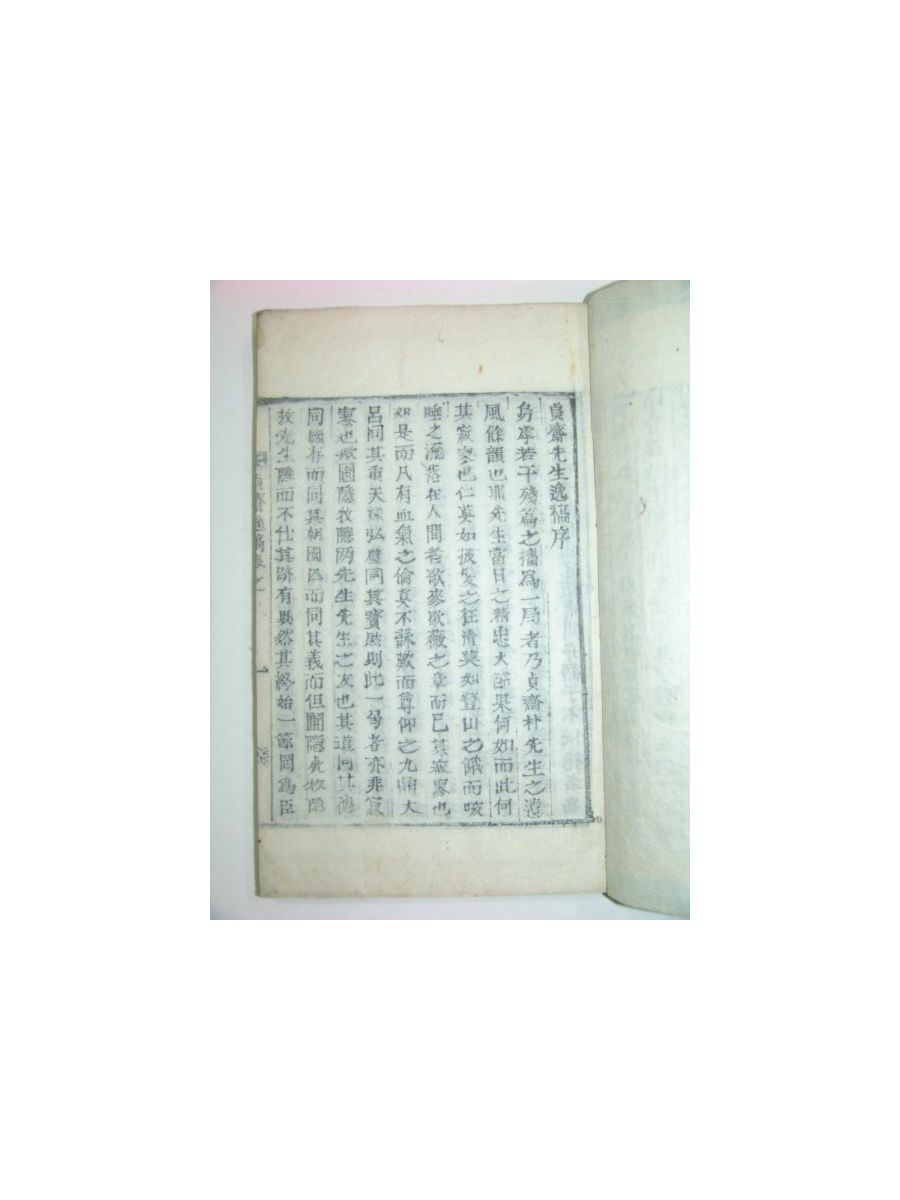 貞齋先生逸稿序
嗚虖若干殘篇之攟爲一局者乃貞齋朴先生之遺
風餘韻也耶先生當日之精忠大節果何如而此何
其寂寥也仁莫如披髮之狂淸莫如登山之餓而咳
唾之流落在人間者歌麥歌薇之章而已其寂寥也
如是而凡有血氣之倫莫不詠歎而尊仰之九鼎大
呂同其重天球弘璧同其寶然則此一局者亦非寂
寥也歟圃隱牧隱两先生先生之友也其道同其德
同國存而同其朝國亡而同其義而但圃隱死牧隱
放先生隱而不仕其跡有異然其終始一節罔爲臣
貞齋逸稿卷之一
一